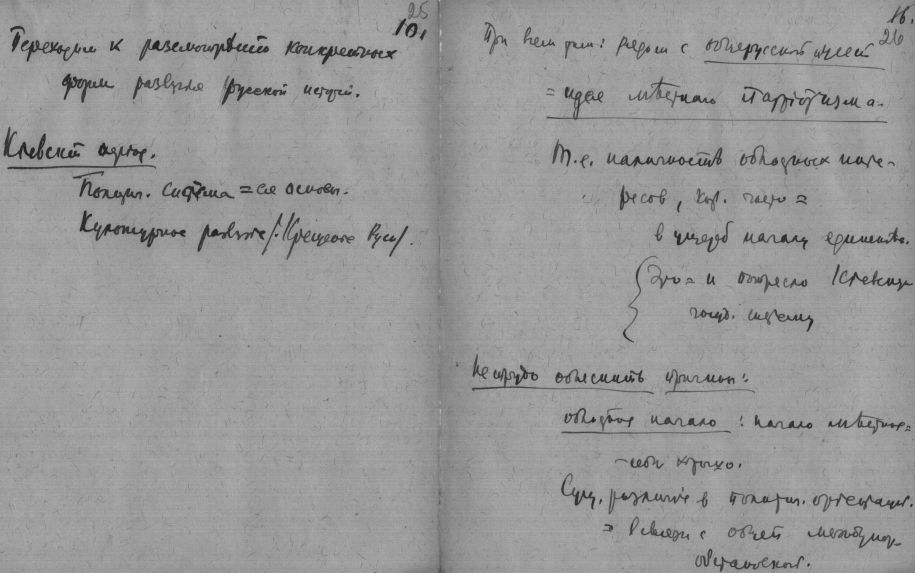 25
10.
Переходим к рассмотрѣнію конкретных
форм развитія русской исторіи.
Кіевскій період.
Политич. система = ея основы.
Культурное развитіе /: Крещеніе Руси/.
16.
26
При всем том: рядом с общерусской идеей
= идея мѣстнаго патріотизма.
Т.е. наличность областных инте-
ресов, кот. часто =
в ущерб началу единства.
Это = и Кіевскую
госуд. систему
Нетрудно объяснить причины:
областное начало : начало мѣстное =
Сущ. различіе в политич. оріентаціи.
= в связи с общей междунар.
обстановкой.